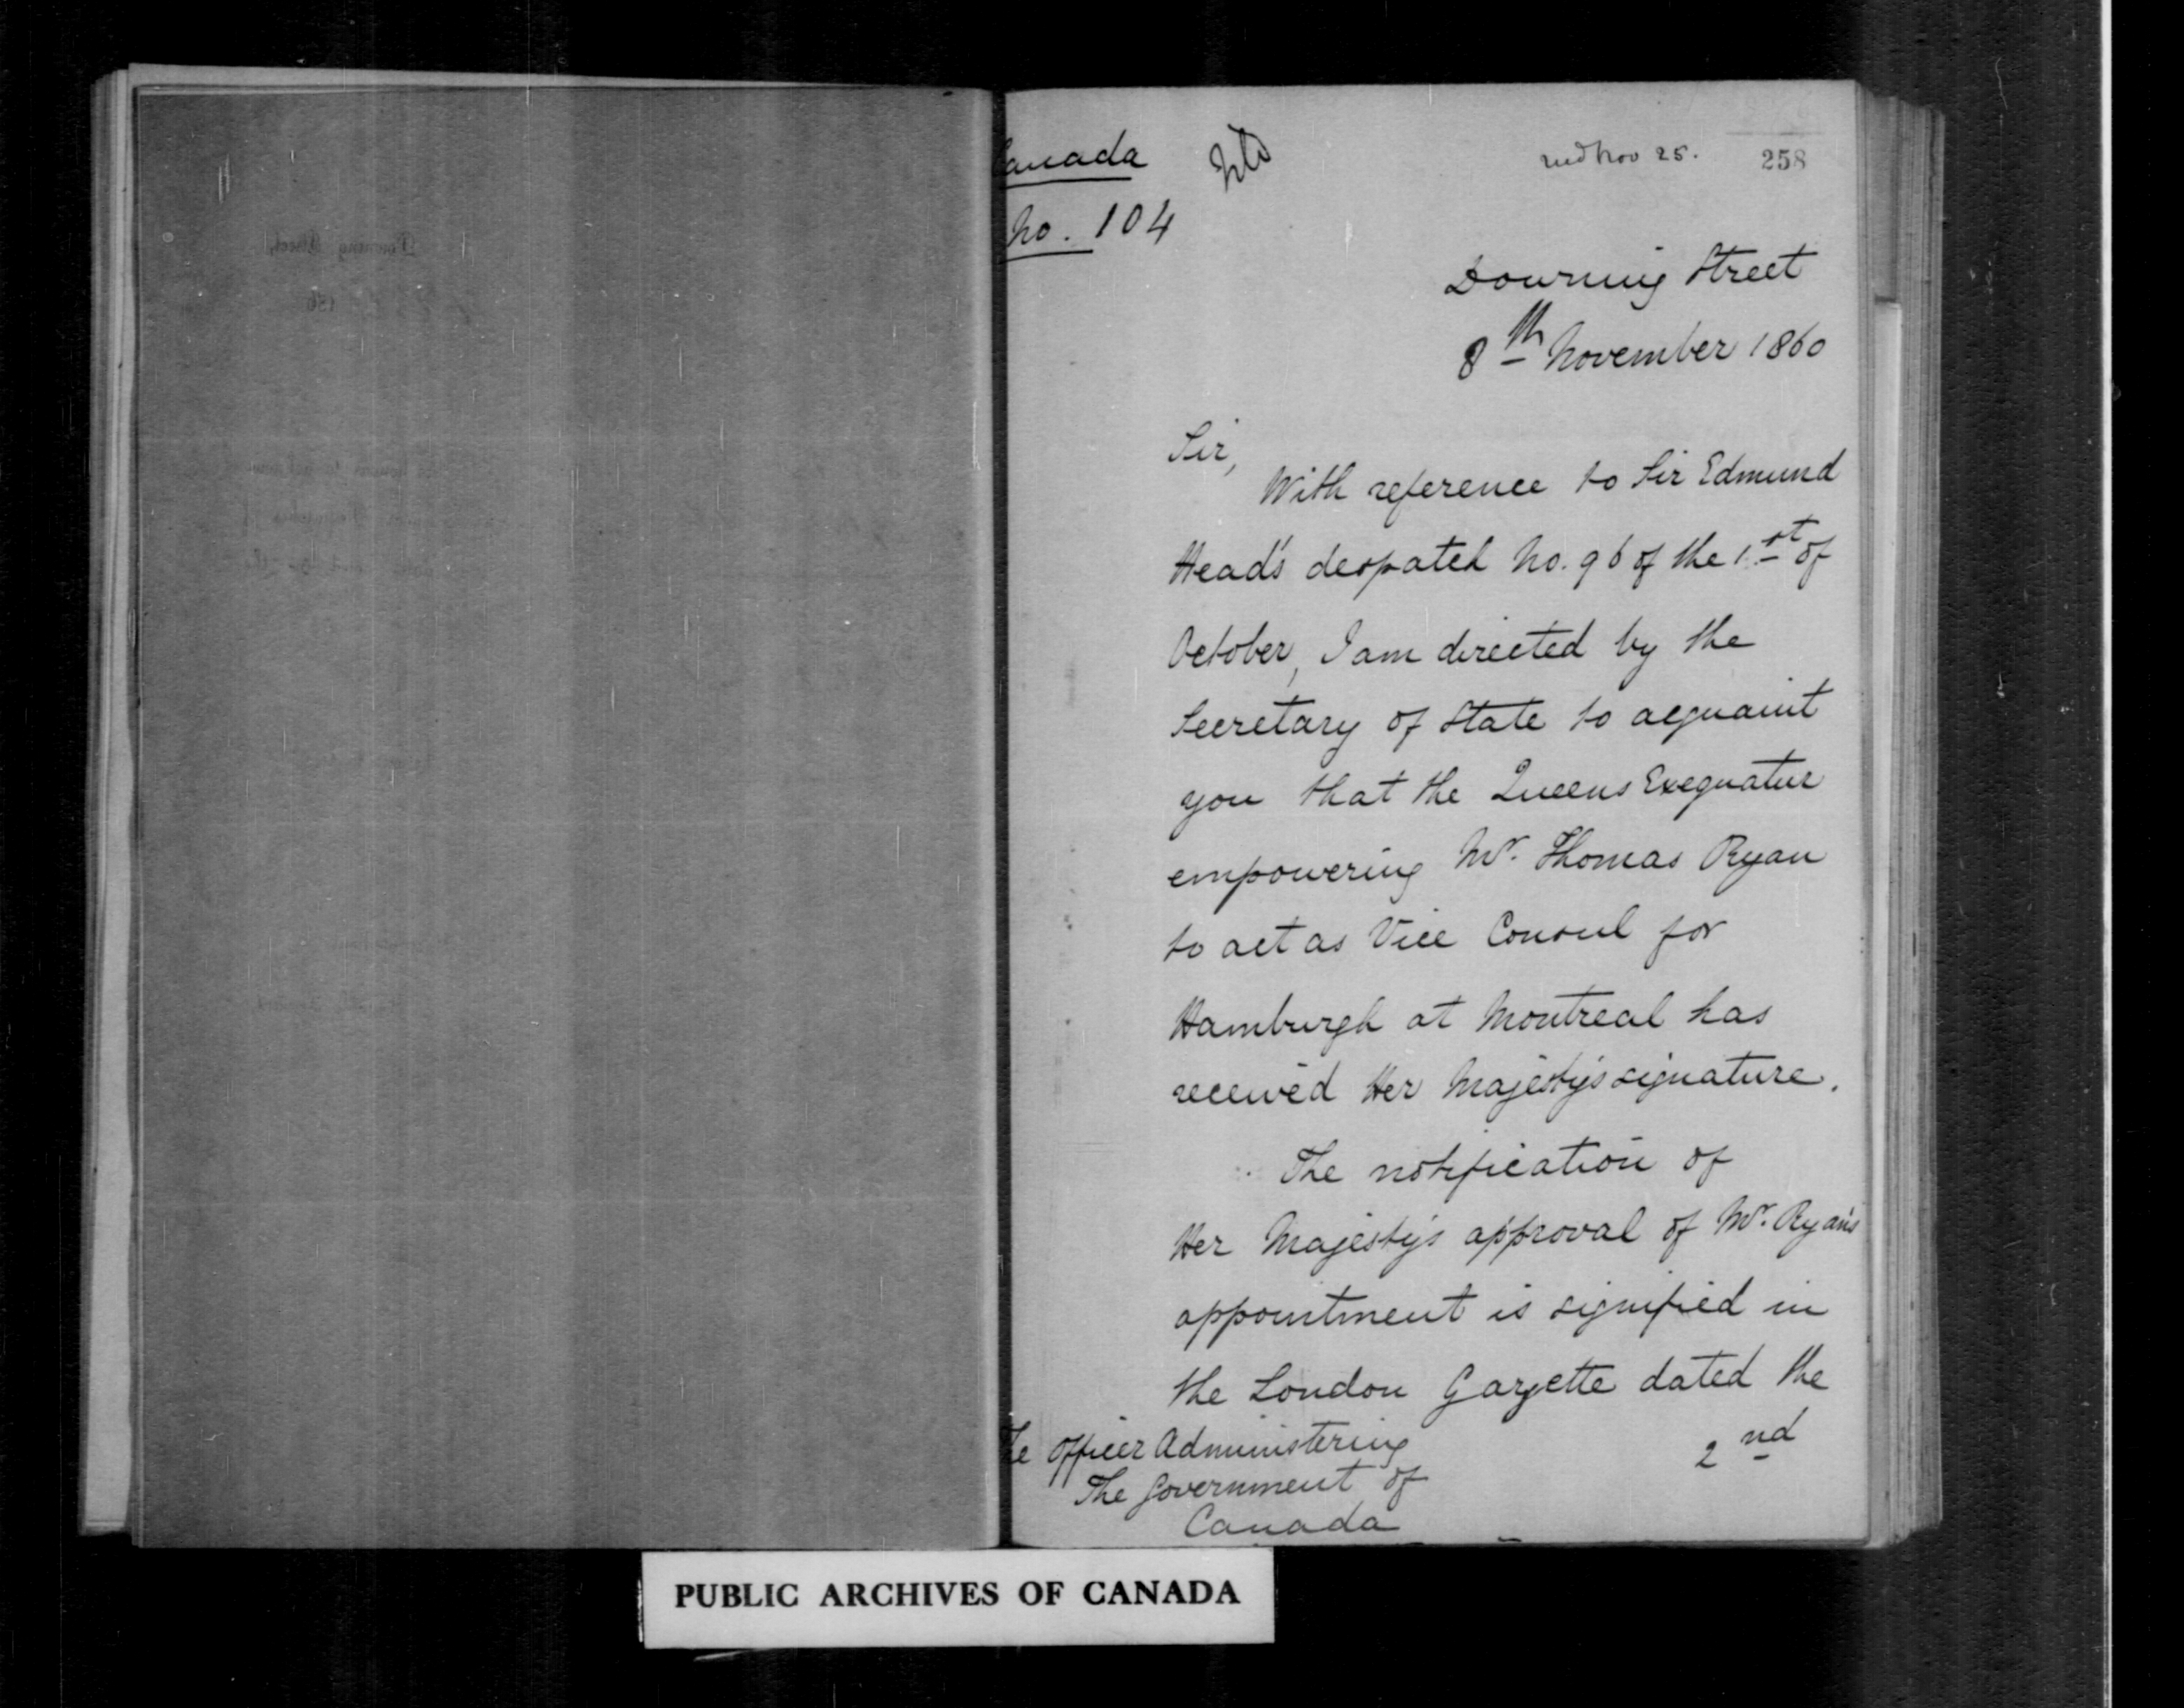 Canada
No. 104
recd Nov 25.
258
Downing Street
8th November 1860
Sir,
With reference to Sir Edmund
Head's despatch No. 96 of the 1st of
October, I am directed by the
Secretary of State to acquaint
you that the Queens Exequatur
empowering Mr. Thomas Ryan
to act as Vice Consul for
Hamburgh at Montreal has
received Her Majesty's signature.
The notification of
Her Majesty's approval of Mr. Ryan's
appointment is signified in
the London Gazette dated the
2nd
The Officer Administering
The Government of
Canada
PUBLIC ARCHIVES OF CANADA